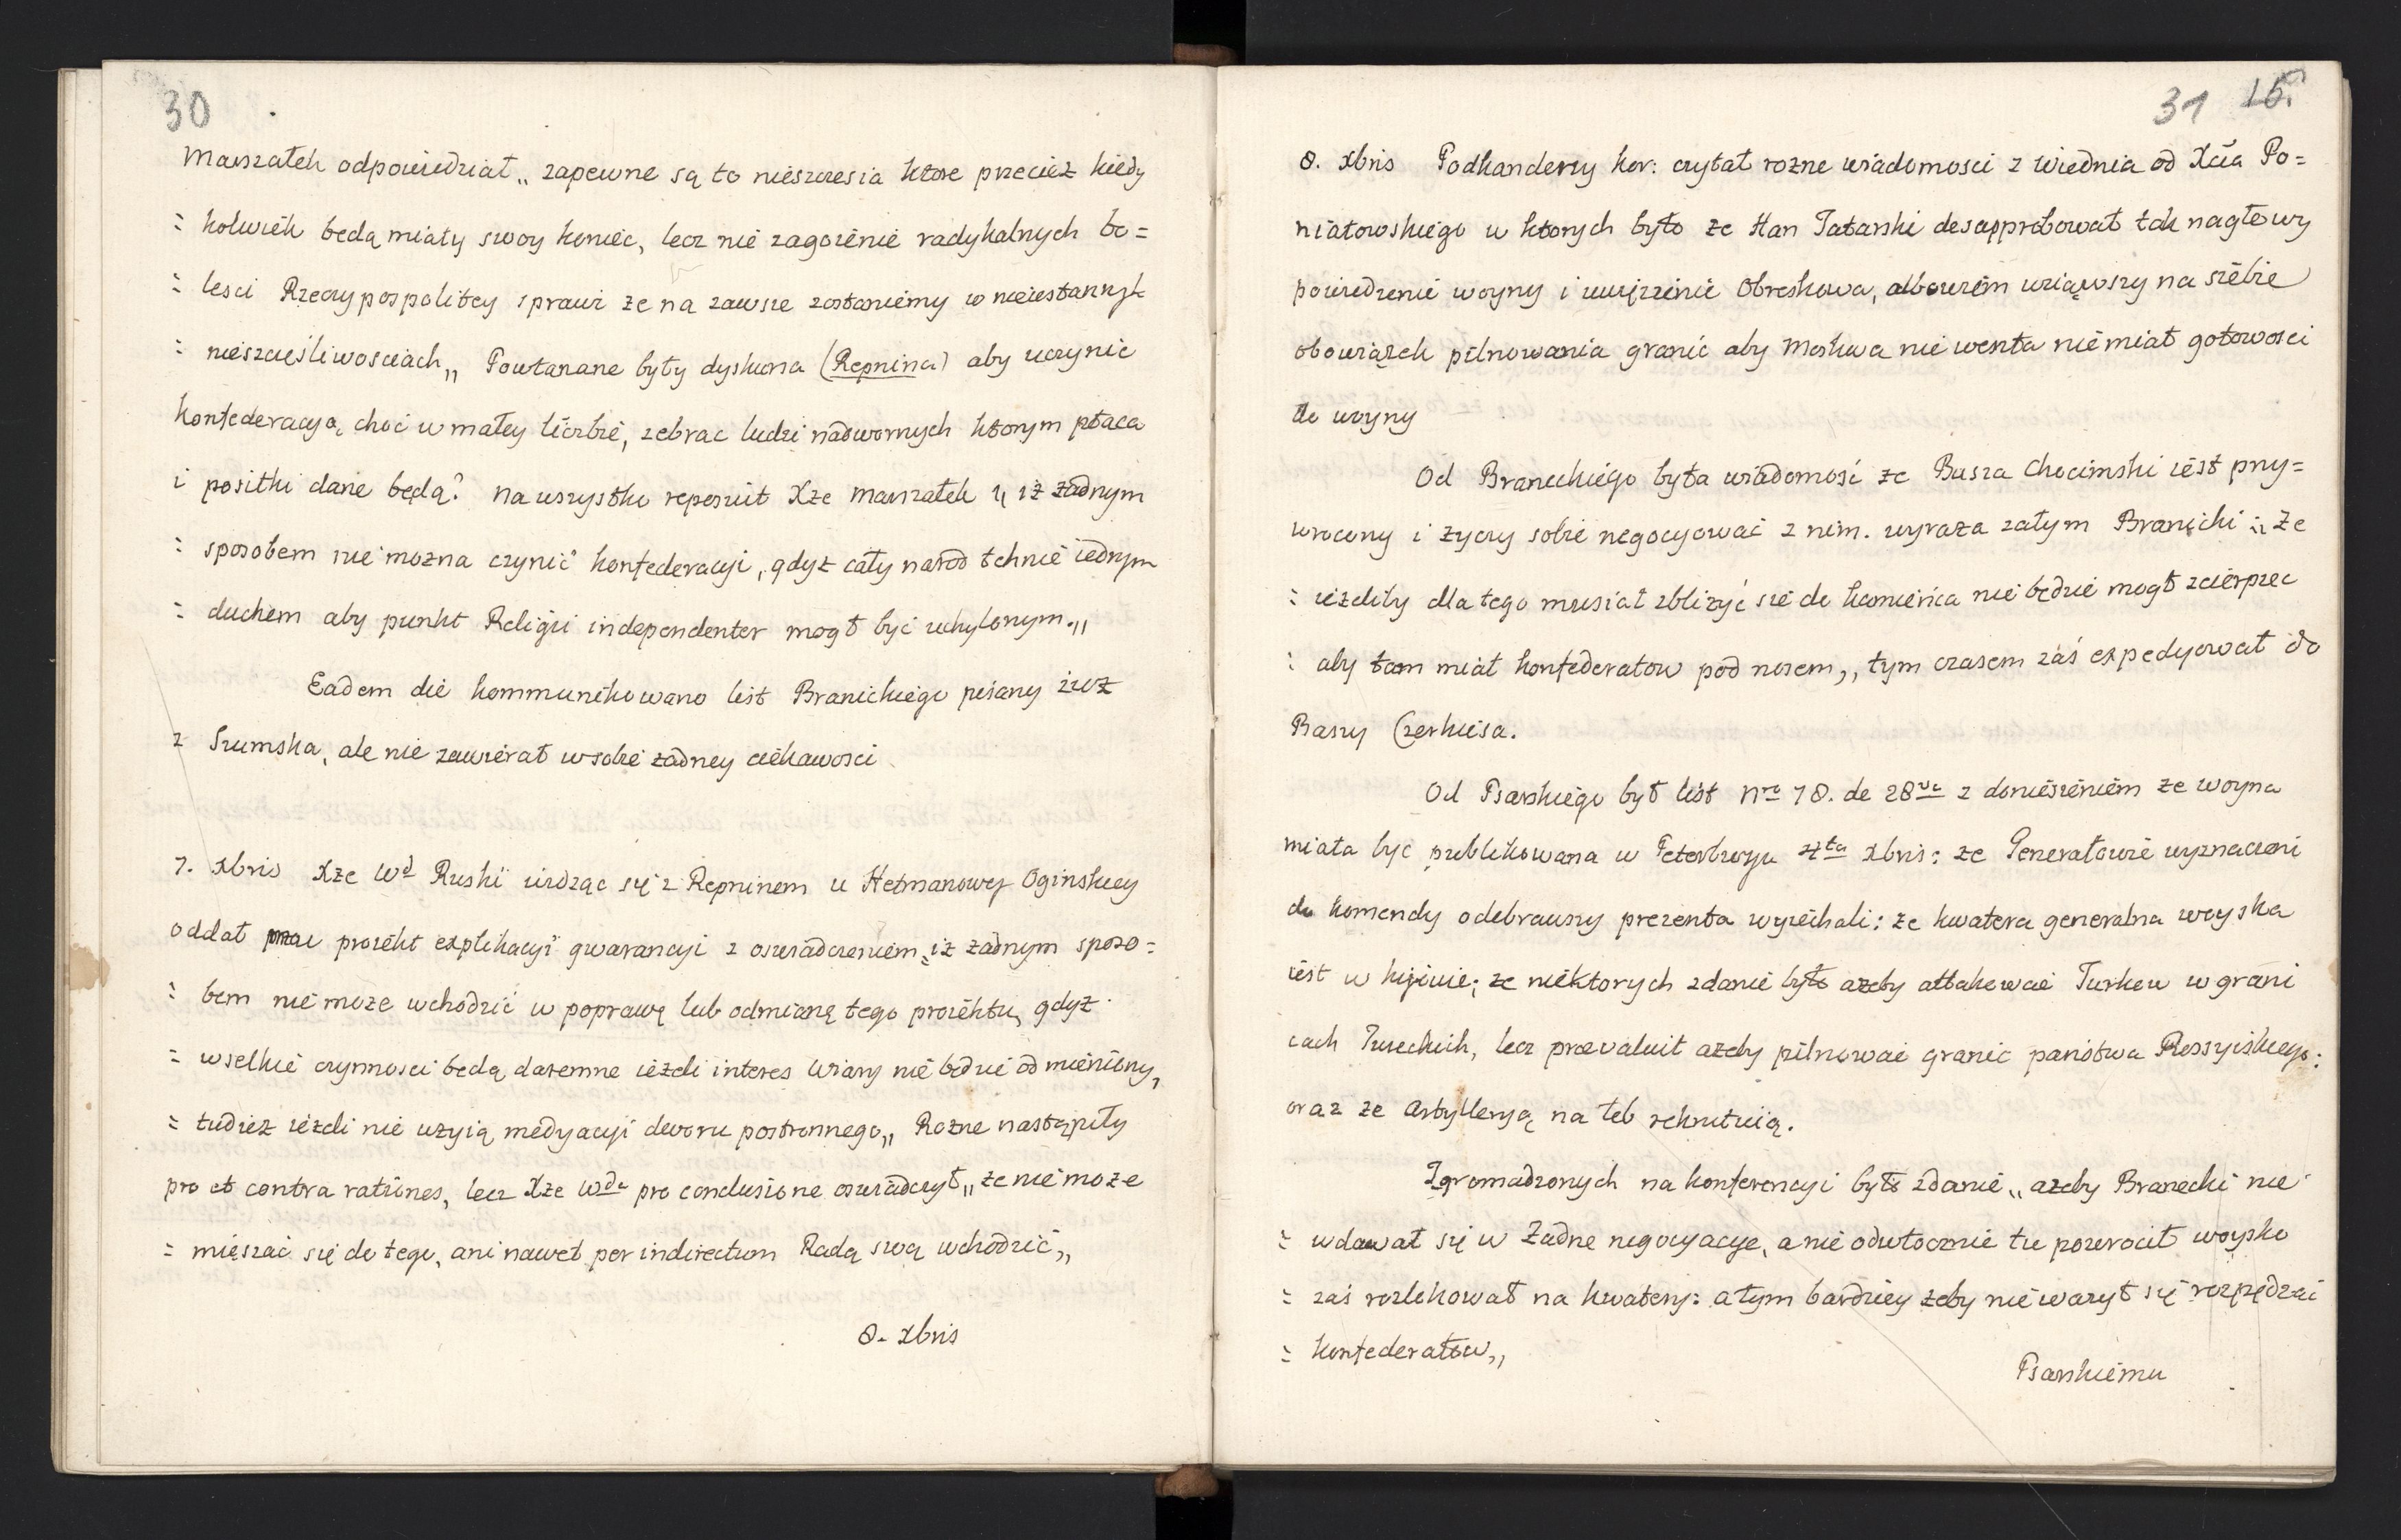 30
Marszałek odpowiedział „ zapewne są to nieszczesia ktore przecież kiedy
= kolwiek będą miały swoy koniec, lecz nie zagoienie radykalnych bo=
= lesci Rzeczypospolitey sprawi ze na zawsze zostaniemy w nieustannych
= nieszczęśliwosciach „ Powtarzane były dyskursa (Repnina) aby uczynic
konfederacyą, choc w małey liczbie, zebrac ludzi nadwornych ktorym płaca
i posiłki dane będą? na wszystko reposuit Xże Marszałek „ iż żadnym
= sposobem nie mozna czynić konfederacyi, gdyż cały narod tchnie iednym
= duchem aby punkt Religii independenter mogł być uchylonym. „
Eadem die kommunikowano list Branickiego pisany iuż
z Szumska, ale nie zawierał w sobie żadney ciekawosci
7. Xbris Xże Wd Ruski widząc się z Repninem u Hetmanowey Oginskiey
oddał proiekt explikacyi gwarancyi z oswiadczeniem „ iż żadnym sposo=
= bem nie może wchodzić w poprawę lub odmianę tego proiektu, gdyż
= wselkie czynnosci będą daremne ieżeli interes Wiary nie będzie odmieniony,
= tudzież ieżeli nie użyią medyacyi dworu postronnego „ Rożne nastąpiły
pro et contra rationes, lecz Xże Wda pro conclusione oswiadczył „ że nie może
= mięszać się do tego, ani nawet per indirectum Radą swą wchodzić „
8. Xbris
31 15.
8. Xbris Podkanderzy kor: czytał rozne wiadomosci z Wiednia od Xcia Po=
niatowskiego w ktorych było że Han Tatarski desapprobował tak nagłe wy
powiedzenie woyny i uwięzienie Obreskowa, albowiem wziąwszy na siebie
obowiązek pilnowania granic aby Moskwa nie weszła nie miał gotowosci
do woyny
Od Braneckiego była wiadomość ze Basza Chocimski iest przy=
wrocony i życzy sobie negocyować z nim. wyraża zatym Branicki „ że
= ieżeliby dla tego musiał zbliżyć się do Kamieńca nie będzie mogł zcierpiec
= aby tam miał konfederatow pod nosem „ tym czasem zaś expedyował do
Baszy Czerkiesa.
Od Psarskiego był list Nro 18. de 28va z doniesieniem że woyna
miała być publikowana w Peterburgu 4ta Xbris: że Generałowie wyznaczeni
do komendy odebrawszy prezenta wyiechali: że kwatera generalna woyska
iest w Kijowie; że niektorych zdanie było ażeby attakować Turkow w grani
cach Tureckich, lecz prævaluit ażeby pilnować granic państwa Rossyiskiego:
oraz że Artylleryą na łeb rekrutuią.
Zgromadzonych na konferencyi było zdanie „ ażeby Branecki nie
= wdawał się w Żadne negocyacye, a nie odwłocznie tu powrocił woysko
= zaś rozlokował na kwatery: a tym bardziey żeby nie ważył się rozpędzać
= konfederatow „
Psarskiemu